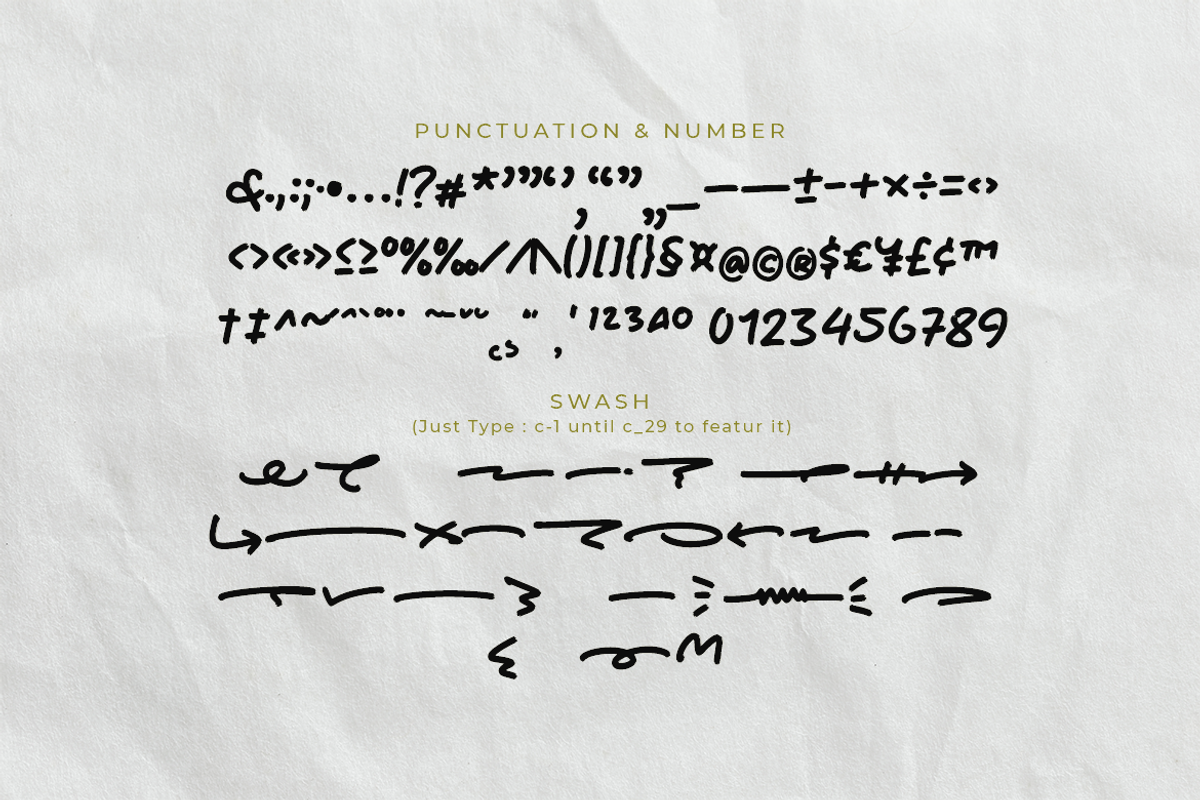 PUNCTUATION & NUMBER
&.,:;·•…!?#*’”“‘’ “”‚„_–—±-+×÷=‹›
<>«»≤≥º%‰/⁄\()[]{}§¤@©®$€¥£¢™
†‡^~ˆˇ˚¨˙ ˜¯˘ ¸ ˝ ' , 12340 0123456789
SWASH
(Just Type : c-1 until c_29 to featur it)